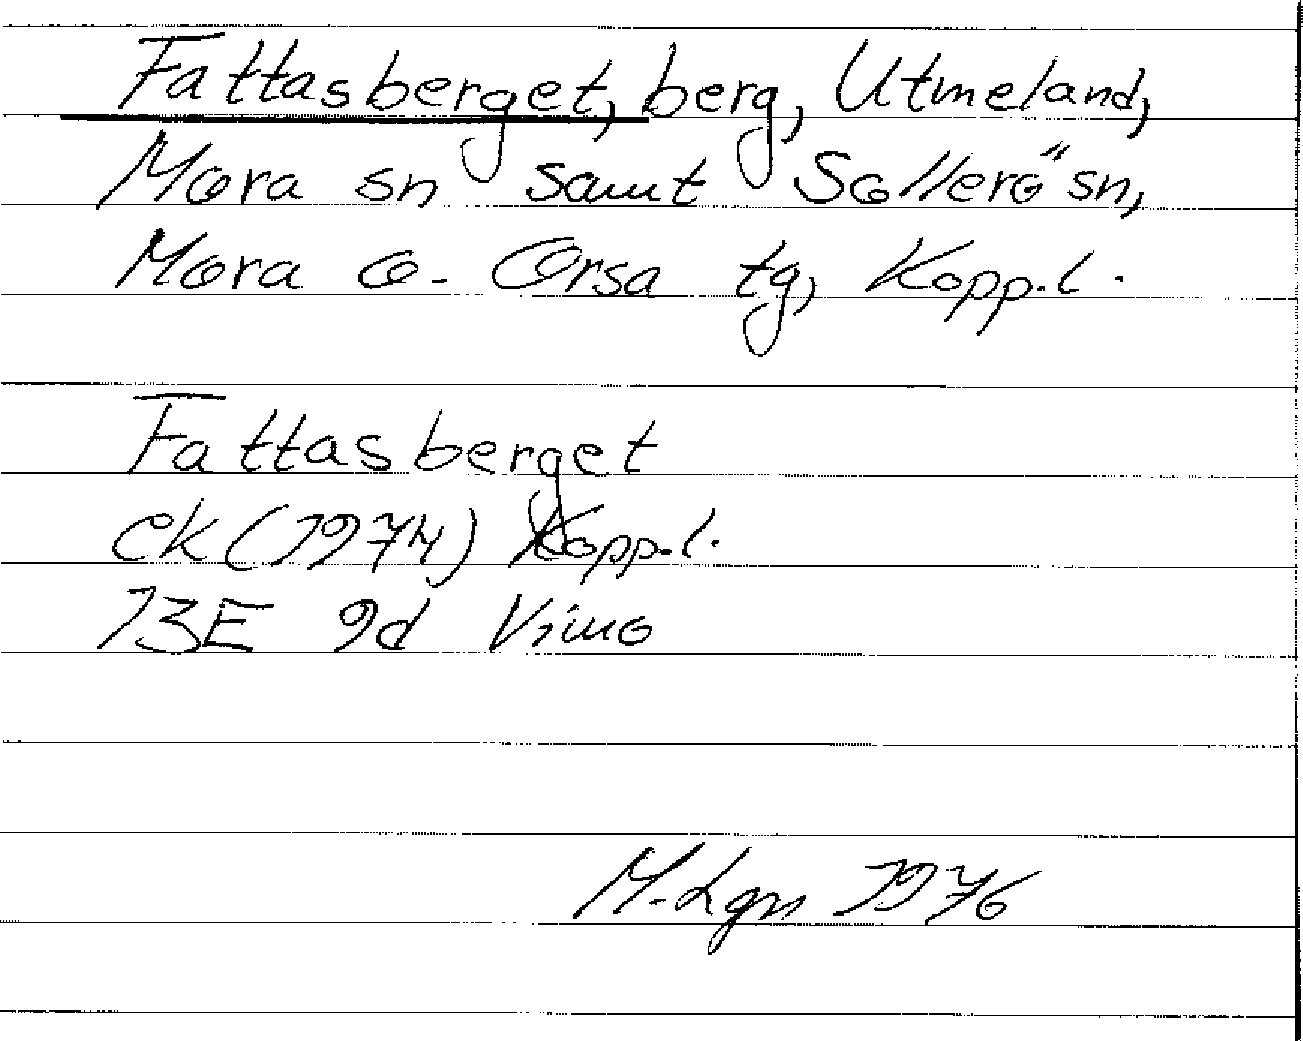 Fattasberget, berg, Utmeland,
Mora sn samt Sollerö sn,
Mora o. Orsa tg, Kopp.l.
Fattasberget
ek (1974) Kopp.l.
13E 9d Vimo
M. Lgn 1976